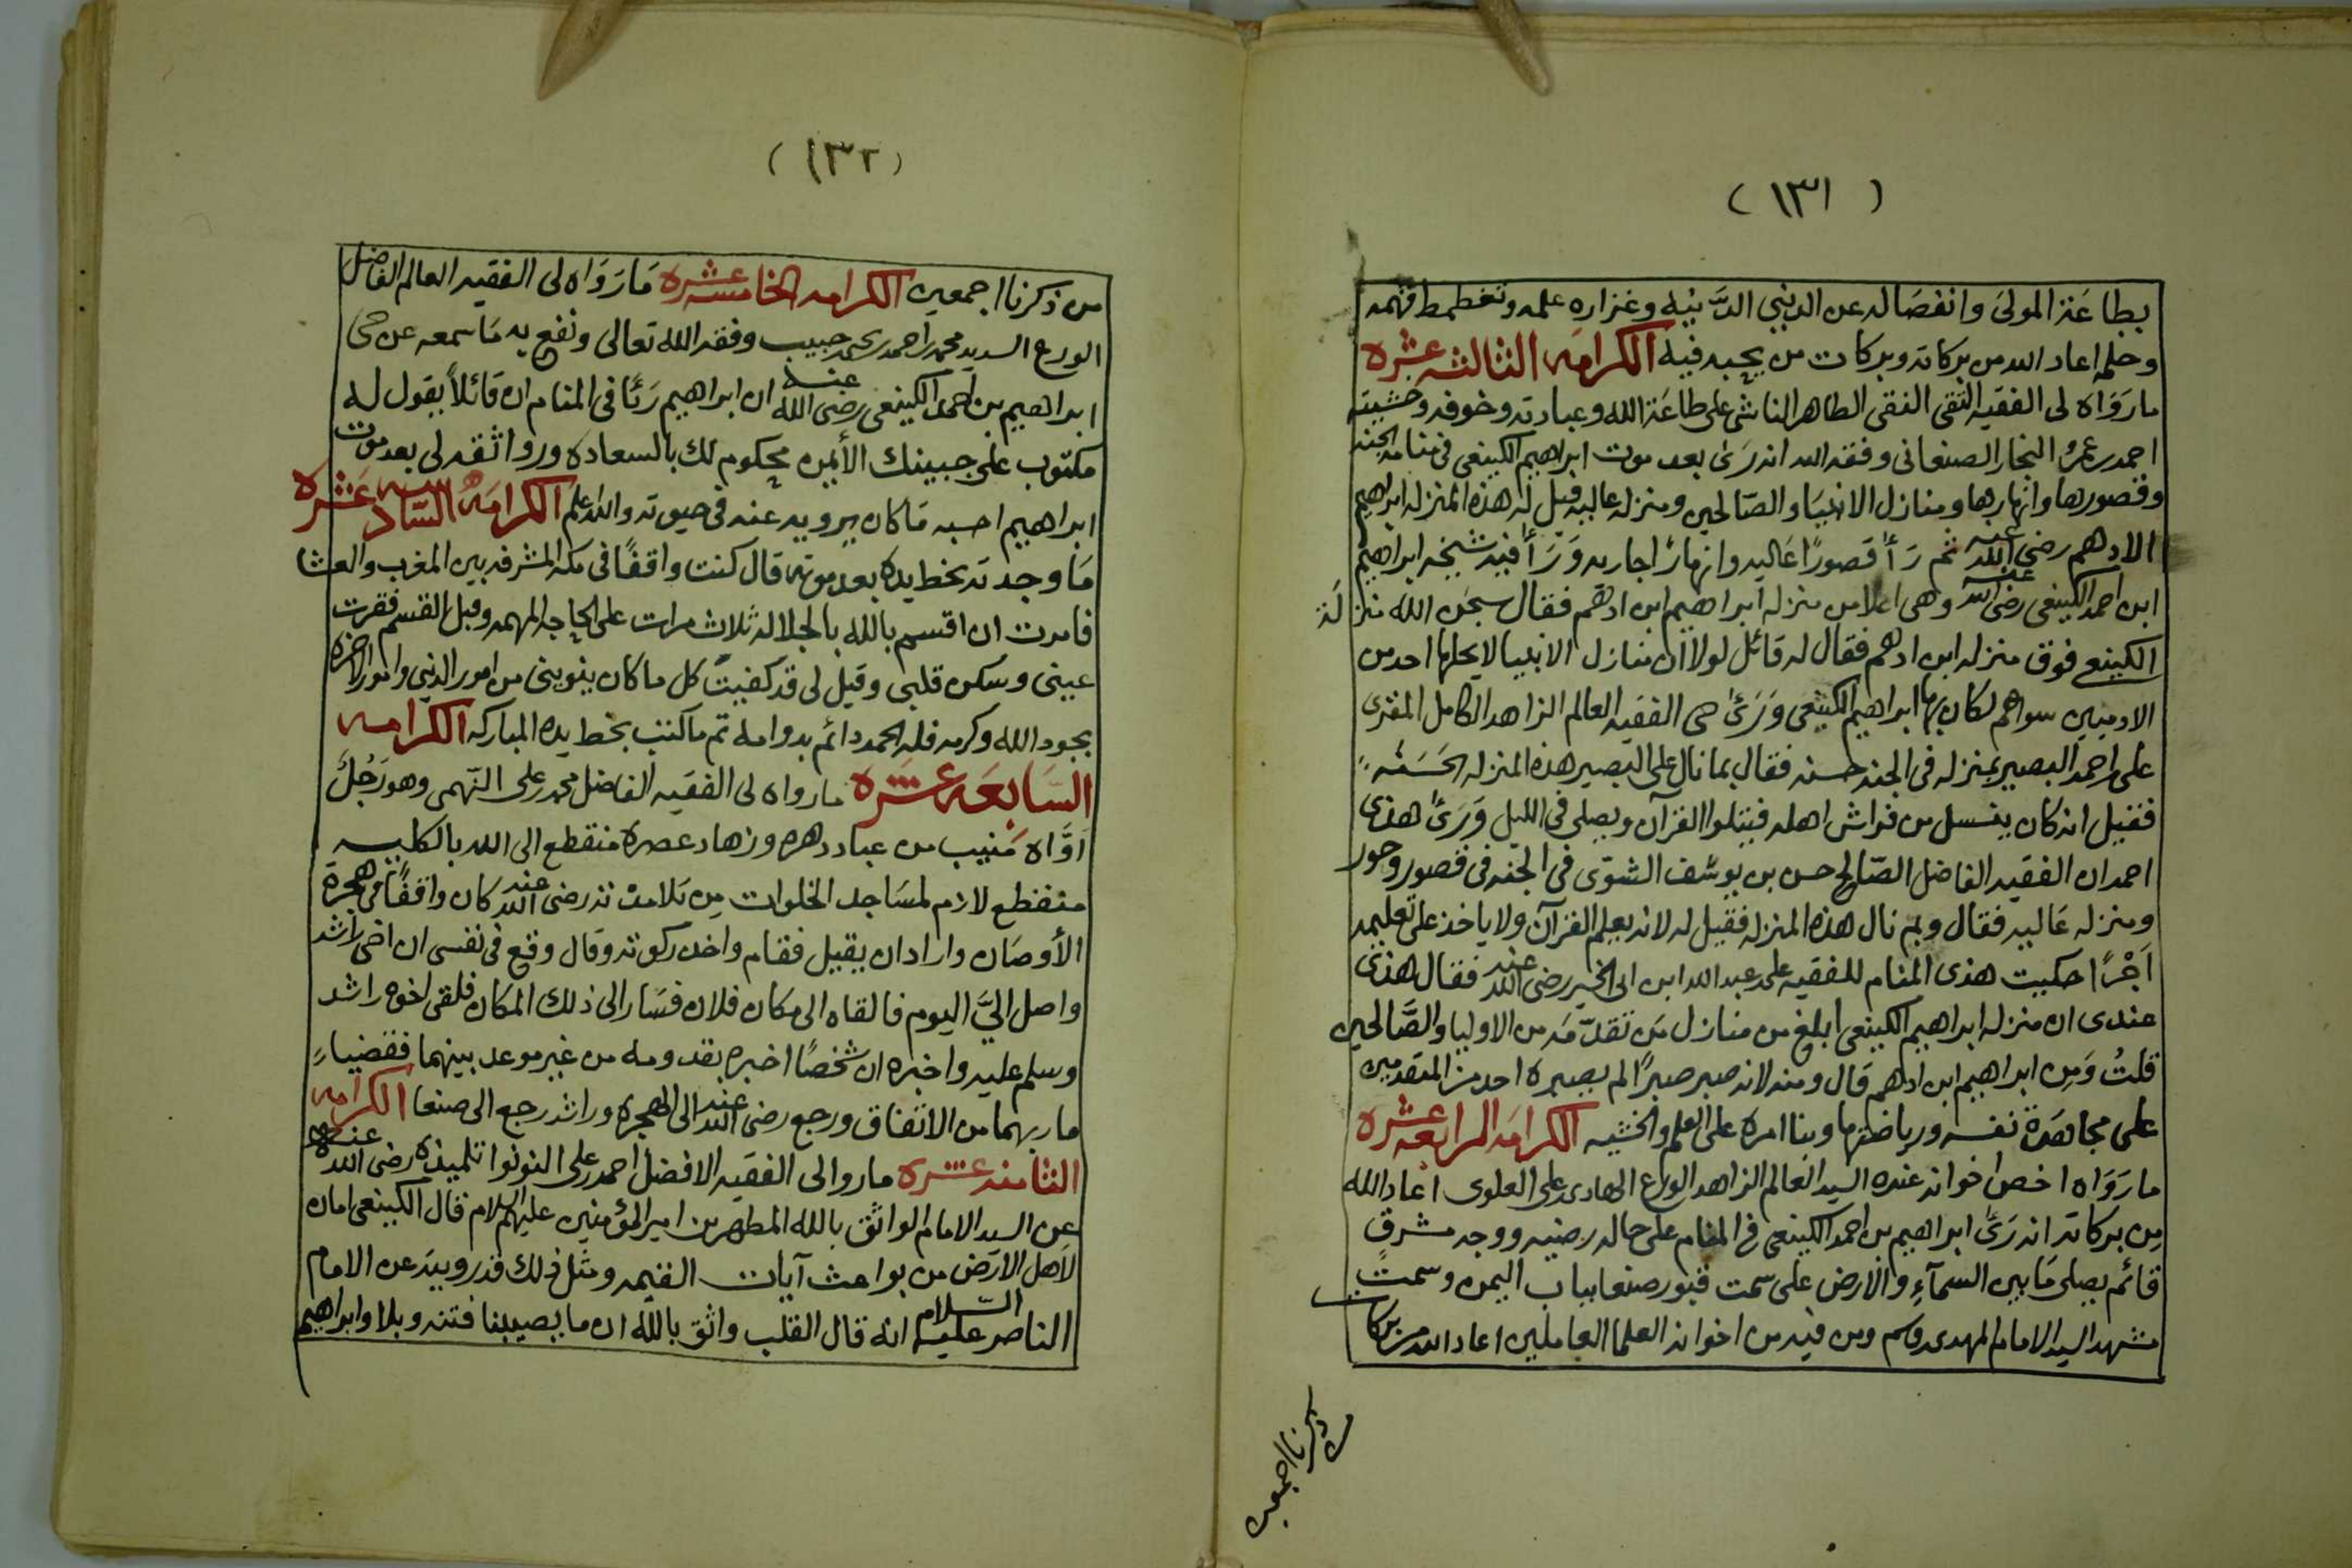 (١٣١)
بطاعة المولى وانفصاله عن الدنيى الدنيه وغزاره علمه وتغطمط فهمه
وحلمه اعاد الله من بركاته وبركات من يحبه فيه الكرامه الثالثه عشره
مارواه لى الفقيه التقى النقى الطاهر الناشى على طاعة الله وعبادته وخوفه وخشيته
احمد بن عمرو النجار الصنعانى وفقه الله انه رئ بعد موت ابراهيم الكينعى فى منامه الجنه
وقصورها وانهارها ومنازل الانبيا والصالحين ومنزله عاليه قيل له هذه المنزله ابراهيم
الادهم رضى الله عنه ثم رأ قصورًا عاليه وانهارًا جاريه ورأ فيه شيخه ابراهيم
ابن احمد الكينعى رضى الله عنه وهى اعلا من منزله ابراهيم ابن ادهم فقال سبحن الله منزلة
الكينعى فوق منزله ابن ادهم فقال له قائل لولا ان منازل الانبيا لا يحلها احد من
الادميين سواهم لكان بها ابراهيم الكينعى ورئ حى الفقيه العالم الزاهد الكامل المقرى
على بن احمد البصير بمنزله فى الجنه حسنه فقال بما نال على البصير هذه المنزله الحسنه
فقيل انه كان ينسل من فراش اهله فيتلوا القرآن ويصلى فى الليل ورئ هذى
احمد ان الفقيه الفاضل الصالح حسن بن يوسف الشوى فى الجنه فى قصور وحور
ومنزله عاليه فقال وبم نال هذه المنزله فقيل له لانه يعلم القرآن ولا ياخذ على تعليمه
اجرًا حكيت هذى المنام للفقيه على بن عبد الله ابن ابى الخير رضى الله عنه فقال هذى
عندى ان منزله ابراهيم الكينعى ابلغ من منازل من تقدمه من الاوليا والصالحين
قلت ومن ابراهيم ابن ادهم قال ومنه لانه صبر صبرًا لم يصبره احد من المتقدمين
على مجاهدة نفسه ورياضتها وبنا امره على العلم والخشيه الكرامه الرابعه عشره
مارواه اخص اخوانه عنده السيد العالم الزاهد الورع الهادى بن على العلوى اعاد الله
من بركاته انه رئ ابراهيم بن احمد الكينعى فى المنام على حاله رضيه ووجه مشرق
قائم يصلى مابين السمآء والارض على سمت قبور صنعا بباب اليمن وسمت
مشهد السيد الامام المهدى وس ومن فيه من اخوانه العلما العاملين اعاد الله من بركات
من ذكرنا اجمعين
(١٣٢)
من ذكرنا اجمعين الكرامه الخامسه عشره مارواه لى الفقيه العالم الفاضل
الورع السديد محمد بن احمد بن حبيب وفقه الله تعالى ونفع به ماسمعه عن حى
ابراهيم بن احمد الكينعى رضى الله عنه ان ابراهيم رئا فى المنام ان قائلاً يقول له
مكتوب على جبينك الأيمن محكوم لك بالسعاده وروا ثقه لى بعد موت
ابراهيم احسبه ماكان يرويه عنه فى حيوته والله علم الكرامه السادسه عشره
ما وجدته بخط يده بعد موته قال كنت واقفًا فى مكه المشرفه بين المغرب والعشا
فامرت ان اقسم بالله بالجلاله ثلاث مرات على الحاجه المهمه وقبل القسم فقرت
عينى وسكن قلبى وقيل لى قد كفيت كل ماكان ينوينى من امور الدنيى وامور الاخره
بجود الله وكرمه فله الحمد دائم بدوامه تم ماكتب بخط يده المباركه الكرامه
السابعه عشره مارواه لى الفقيه الفاضل محمد بن على النهمى وهو رجل
اواه منيب من عباد دهره وزهاد عصره منقطع الى الله بالكليه
متقطع لازم لمساجد الخلوات من تلامذته رضى الله عنه كان واقفًا فى هجرة
الأوصان واراد ان يقيل فقام واخذ ركوته وقال وقع فى نفسى ان اخى راشد
واصل الىَّ اليوم فالقاه الى مكان فلان فسار الى ذلك المكان فلقى اخوه راشد
وسلم عليه واخبره ان شخصًا اخبره بقدومه من غير موعد بينهما فقضيا
ماربهما من الاتفاق ورجع رضى الله عنه الى الهجره وراشد رجع الى صنعا الكرامه
الثامنه عشره ماروالى الفقيه الافضل احمد بن على النونوا تلميذه رضى الله عنه
عن السيد الامام الواثق بالله المطهر بن امير المؤمنين عليهم السلام قال الكينعى امان
لاهل الارض من بواعث آيات القيمه ومثل ذلك قد رويته عن الامام
الناصر عليه السلام انه قال القلب واثق بالله ان مايصيبنا فتنه وبلا وابراهيم